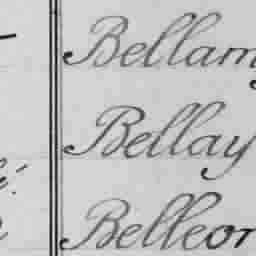 Bellam
Bellay
Belleor